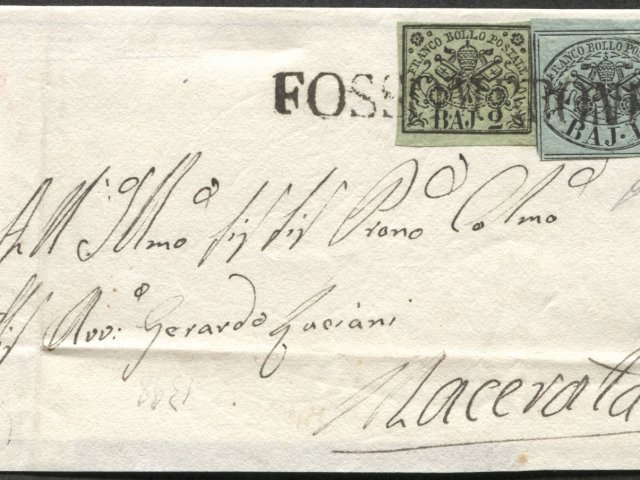 FRANCO BOLLO POSTALE
BAJ. 2
FRANCO BOLLO POSTALE
BAJ. 1
FOSS
All' Illmo Sig Sig Prono Colmo
Sig Avv. Gerardo Luciani
Macerata
1398